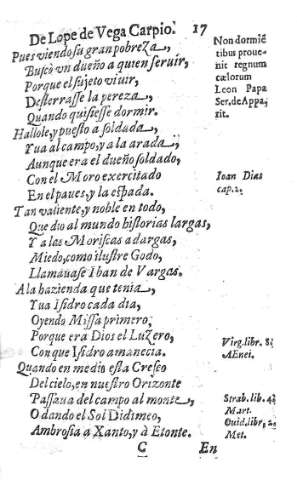 De Lope de Vega Carpio. 17
Pues viendo su gran pobreza,
Buscò vn dueño a quien seruir,
Porque el sujeto viuir,
Desterrasse la pereza,
Quando quisiesse dormir.
Hallole, y puesto a soldada,
Yua al campo, y a la arada,
Aunque era el dueño soldado,
Con el Moro exercitado
En el paues, y la espada.
Tan valiente, y noble en todo,
Que dio al mundo historias largas,
Y a las Moriscas adargas,
Miedo, como ilustre Godo,
Llamauase Iban de Vargas.
A la hazienda que tenia,
Yua Isidro cada dia,
Oyendo Missa primero,
Porque era Dios el Luzero,
Con que Isidro amanecia.
Quando en medio esta Creseo
Del cielo, en nuestro Orizonte
Passaua del campo al monte,
O dando el Sol Didimeo,
Ambrosia a Xanto, y à Etonte.
C En
Non dormiẽ
tibus proue-
nit regnum
cælorum
Leon Papa
Ser. de Appa
rit.
Ioan Dias
cap. 2.
Virg. libr. 8.
AEnei.
Strab. lib. 4.
Mart.
Ouid. libr, 2.
Met.